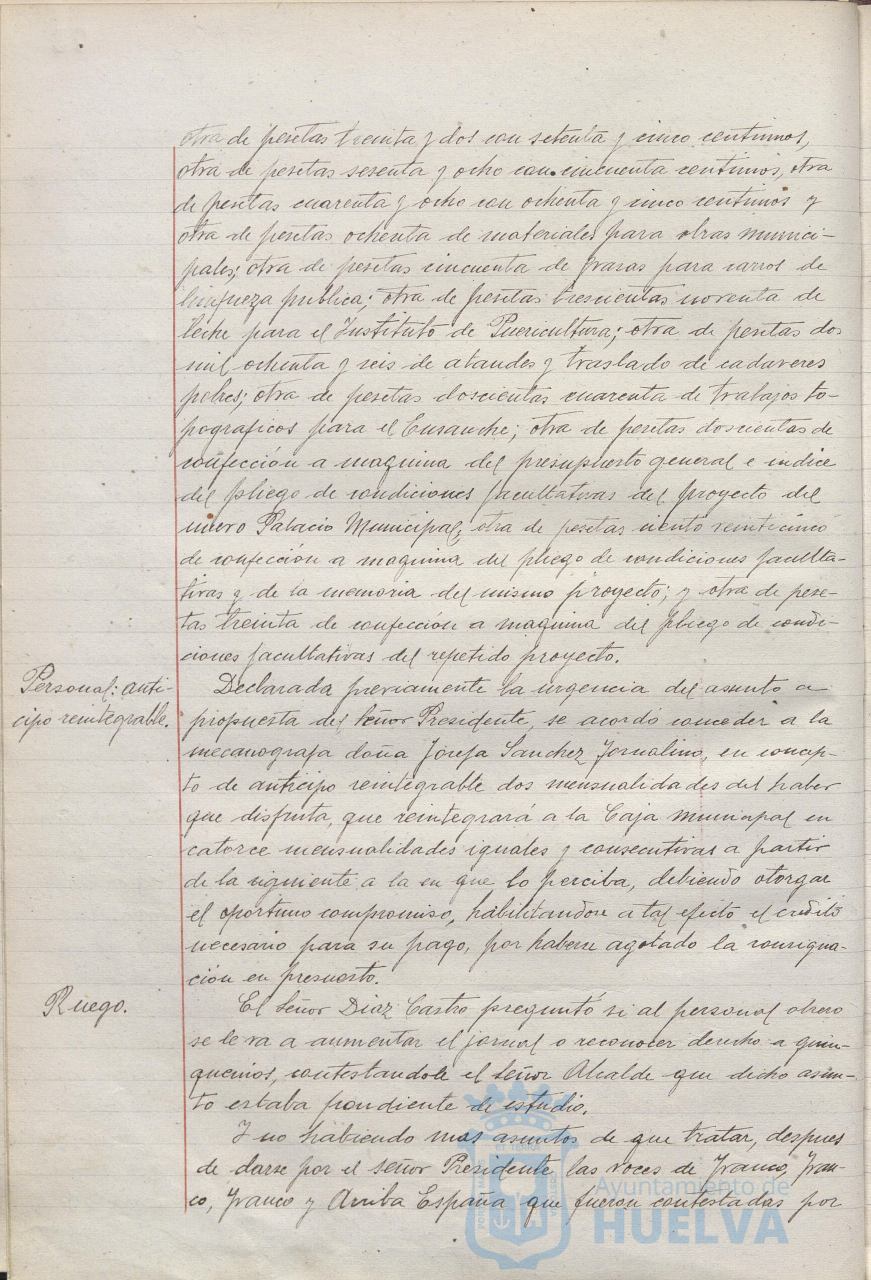 otra de pesetas treinta y dos con setenta y cinco centimos,
otra de pesetas sesenta y ocho con cincuenta centimos, otra
de pesetas cuarenta y ocho con ochenta y cinco centimos y
otra de pesetas ochenta de materiales para obras munici-
pales; otra de pesetas cincuenta de grasas para carros de
limpieza publica; otra de pesetas trescientas noventa de
leche para el Instituto de Puericultura; otra de pesetas dos
mil ochenta y seis de ataudes y traslado de cadaveres
pobres; otra de pesetas doscientas cuarenta de trabajos to-
pograficos para el Ensanche; otra de pesetas doscientas de
confección a maquina del presupuesto general e indice
del pliego de condiciones facultativas del proyecto del
nuevo Palacio Municipal; otra de pesetas ciento veinticinco
de confección a maquina del pliego de condiciones faculta-
tivas y de la memoria del mismo proyecto; y otra de pese-
tas treinta de confección a maquina del pliego de condi-
ciones facultativas del repetido proyecto.
Personal: anti-
cipo reintegrable.
Declarada previamente la urgencia del asunto a
propuesta del señor Presidente, se acordó conceder a la
mecanografa doña Josefa Sanchez Jornalino, en concep-
to de anticipo reintegrable dos mensualidades del haber
que disfruta, que reintegrará a la Caja municipal en
catorce mensualidades iguales y consecutivas a partir
de la siguiente a la en que lo perciba, debiendo otorgar
el oportuno compromiso, habilitandose a tal efecto el credito
necesario para su pago, por haberse agotado la consigna-
ción en presuesto.
Ruego.
El Señor Diaz Castro preguntó si al personal obrero
se le va a aumentar el jornal o reconocer derecho a quin-
quenios, contestandole el señor Alcalde que dicho asun-
to estaba pendiente de estudio.
Y no habiendo mas asuntos de que tratar, despues
de darse por el señor Presidente las voces de Franco, Fran-
co, Franco y Arriba España que fueron contestadas por
Ayuntamiento de
HUELVA